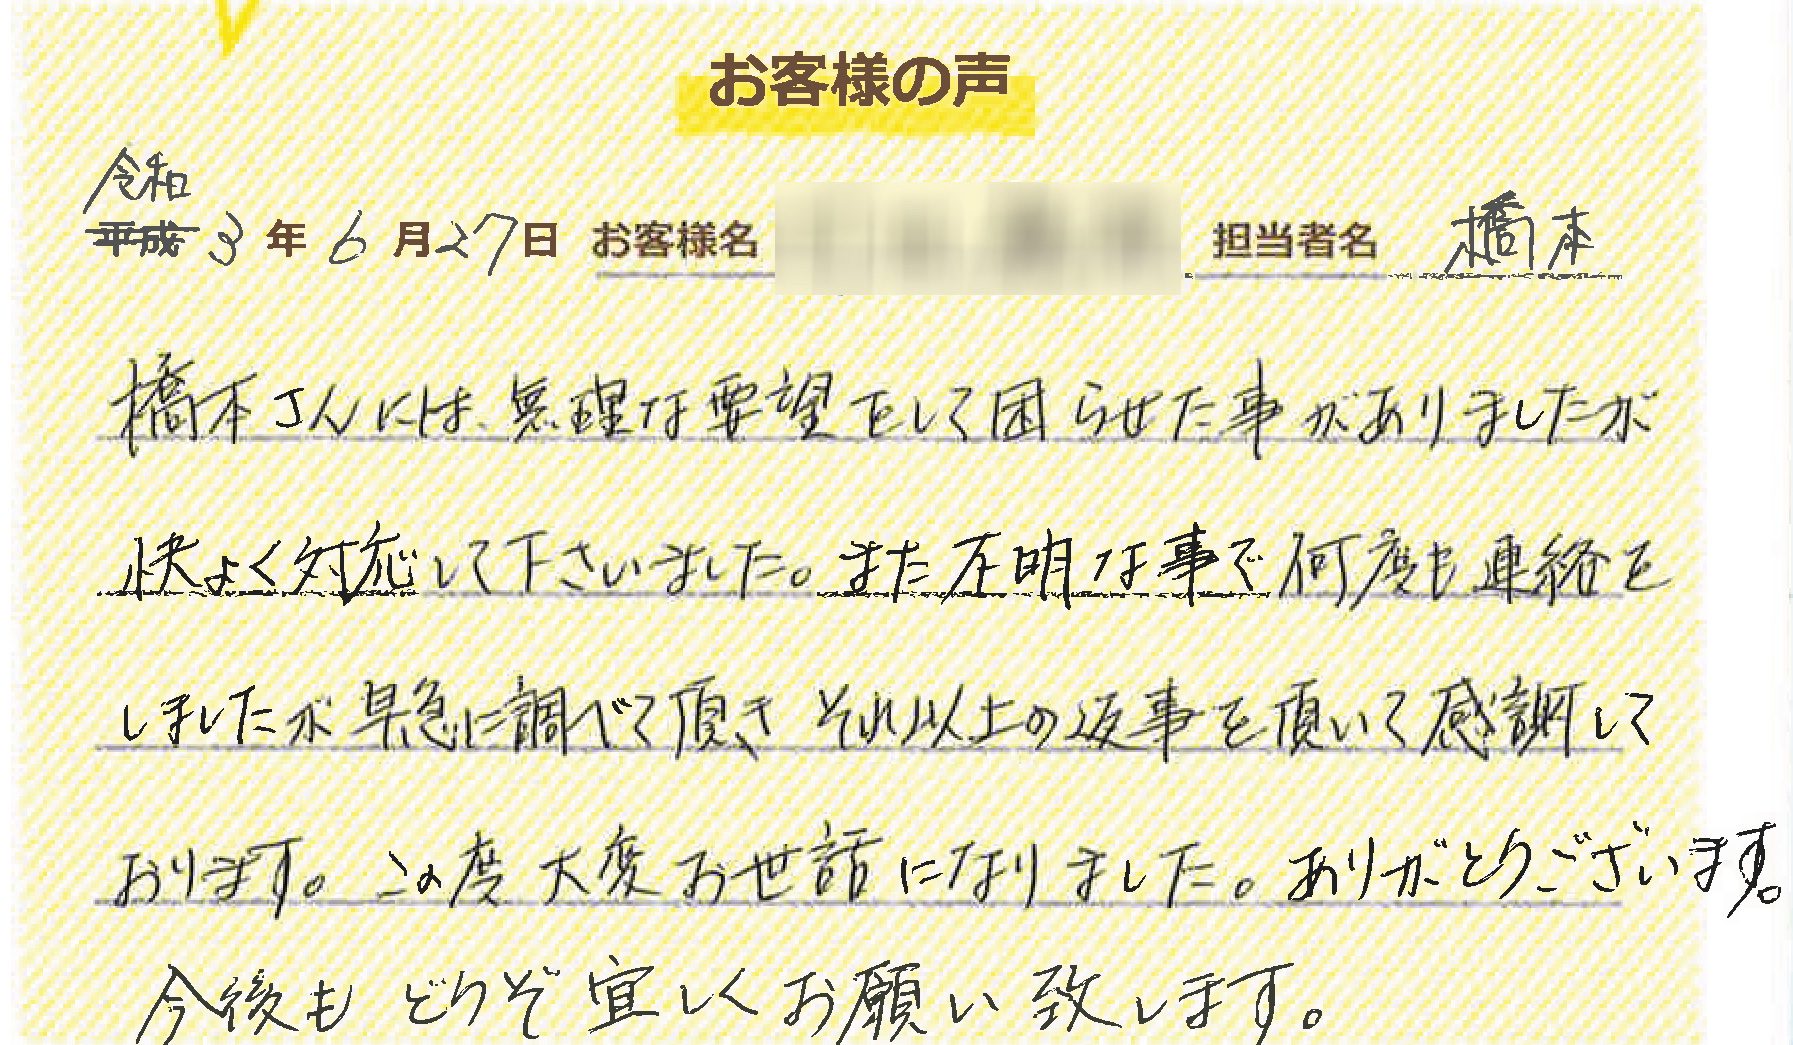 お客様の声
令和
平成 3年6月27日 お客様名 担当者名 橋本
橋本さんには、無理な要望をして困らせた事がありましたが
快よく対応して下さいました。また不明な事で何度も連絡を
しましたが早急に調べて頂きそれ以上の返事を頂いて感謝して
おります。この度大変お世話になりました。ありがとうございます。
今後もどうぞ宜しくお願い致します。